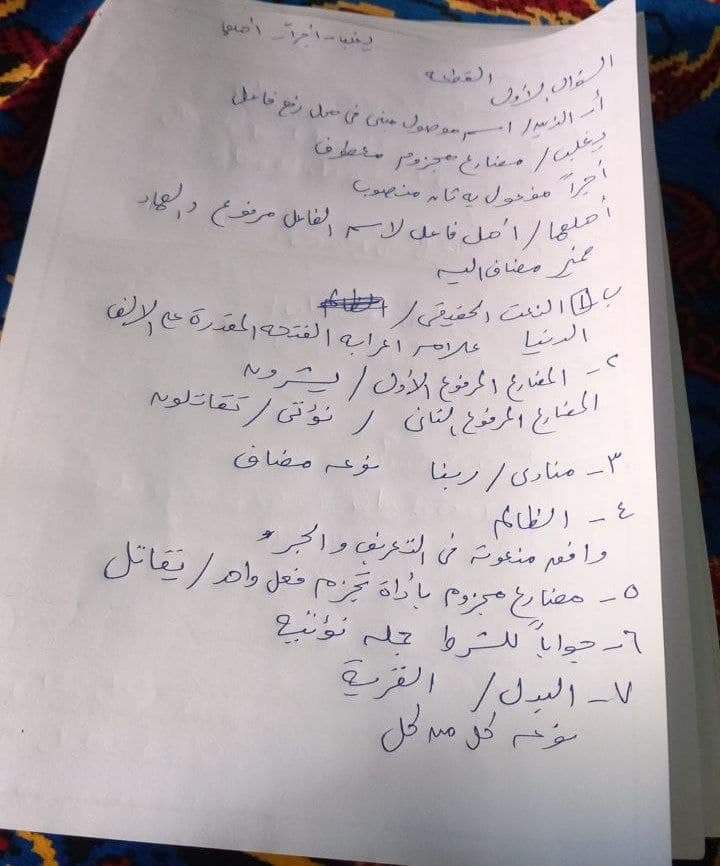 يغلب - أجراً - أهلها
السؤال الأول القطعة
أ- الذين / اسم موصول مبني في محل رفع فاعل
يغلب / مضارع مجزوم معطوف
أجراً مفعول به ثان منصوب
أهلها / أهل فاعل لاسم الفاعل مرفوع والهاء
ضمير مضاف اليه
ب 1 النعت الحقيقي /
الدنيا علامه اعرابه الفتحه المقدرة على الالف
٢- المضارع المرفوع الأول / يشرون
المضارع المرفوع الثانى / نؤتى / تقاتلون
٣- منادى / ربنا نوعه مضاف
٤- الظالم
وافق منعوته فى التعريف والجر
٥- مضارع مجزوم بأداة تجزم فعل واحد / يقاتل
٦- جواباً للشرط جمله نؤتيه
٧- البدل / القرية
نوعه كل من كل